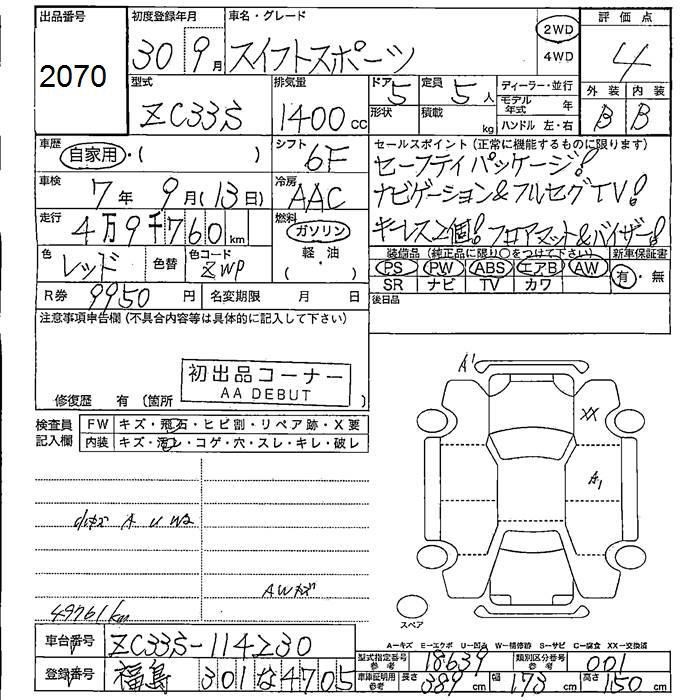 出品番号 初度登録年月 車名・グレード 評価点
2070 30 9月 スイフトスポーツ 2WD 4WD 4
型式 排気量 ドア 定員 ディーラー・並行 外装 内装
ZC33S 1400cc 5 5人 モデル年式 年 B B
形状 積載 kg ハンドル 左・右
車歴 シフト セールスポイント(正常に機能するものに限ります)
自家用・( ) 6F セーフティパッケージ!
車検 冷房 ナビゲーション&フルセグTV!
7年 9月(13日) AAC キーレス2個! フロアマット&バイザー!
走行 燃料
4万9千760km ガソリン
軽・油
( ・ )
色 色替 色コード 装備品(純正品に限り○をつけて下さい) 新車保証書
レッド ZWP PS PW ABS エアB AW 有・無
SR ナビ TV カワ
R券 9950円 名変期限 月 日 後日品
注意事項申告欄(不具合内容等は具体的に記入して下さい)
初出品コーナー
AA DEBUT
修復歴 有(箇所
検査員記入欄 FW キズ・飛石・ヒビ割・リペア跡・X要
内装 キズ・汚レ・コゲ・穴・スレ・キレ・破レ
A'
XX
A1
小キズ A U W2
AWキズ
49761km
スペア
A―キズ E―エクボ U―凹凸 W―補修跡 S―サビ C―腐食 XX―交換済
車台番号 ZC33S-114230
型式指定番号 参考 18639 類別区分番号 参考 001
登録番号 福島 301 な 4705
車庫証明用 参考 長さ 389cm 幅 173cm 高さ 150cm